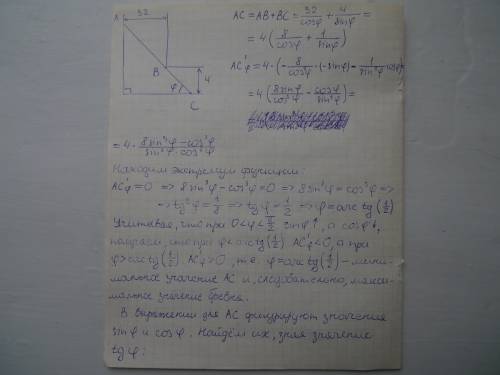 A
32
B
4
φ
C
AC = AB + BC = 32/cosφ + 4/sinφ =
= 4 (8/cosφ + 1/sinφ)
AC'φ = 4·(-8/cos²φ·(-sinφ) - 1/sin²φ cosφ) =
= 4 (8sinφ/cos²φ - cosφ/sin²φ) =
= 4 · (8sin³φ - cos³φ)/(sin²φ·cos²φ)
Находим экстремум функции:
AC'φ = 0 => 8sin³φ - cos³φ = 0 => 8sin³φ = cos³φ =>
=> tg³φ = 1/8 => tgφ = 1/2 => φ = arctg(1/2)
Учитывая, что при 0<φ<π/2 sinφ↑, а cosφ↓,
получаем, что при φ<arctg(1/2) AC'φ<0, а при
φ>arctg(1/2) AC'φ>0, т.е. φ=arctg(1/2) - мини-
мальное значение AC и, следовательно, макси-
мальное значение бревна.
В выражении для AC фигурируют значения
sinφ и cosφ. Найдём их, зная значение
tgφ: